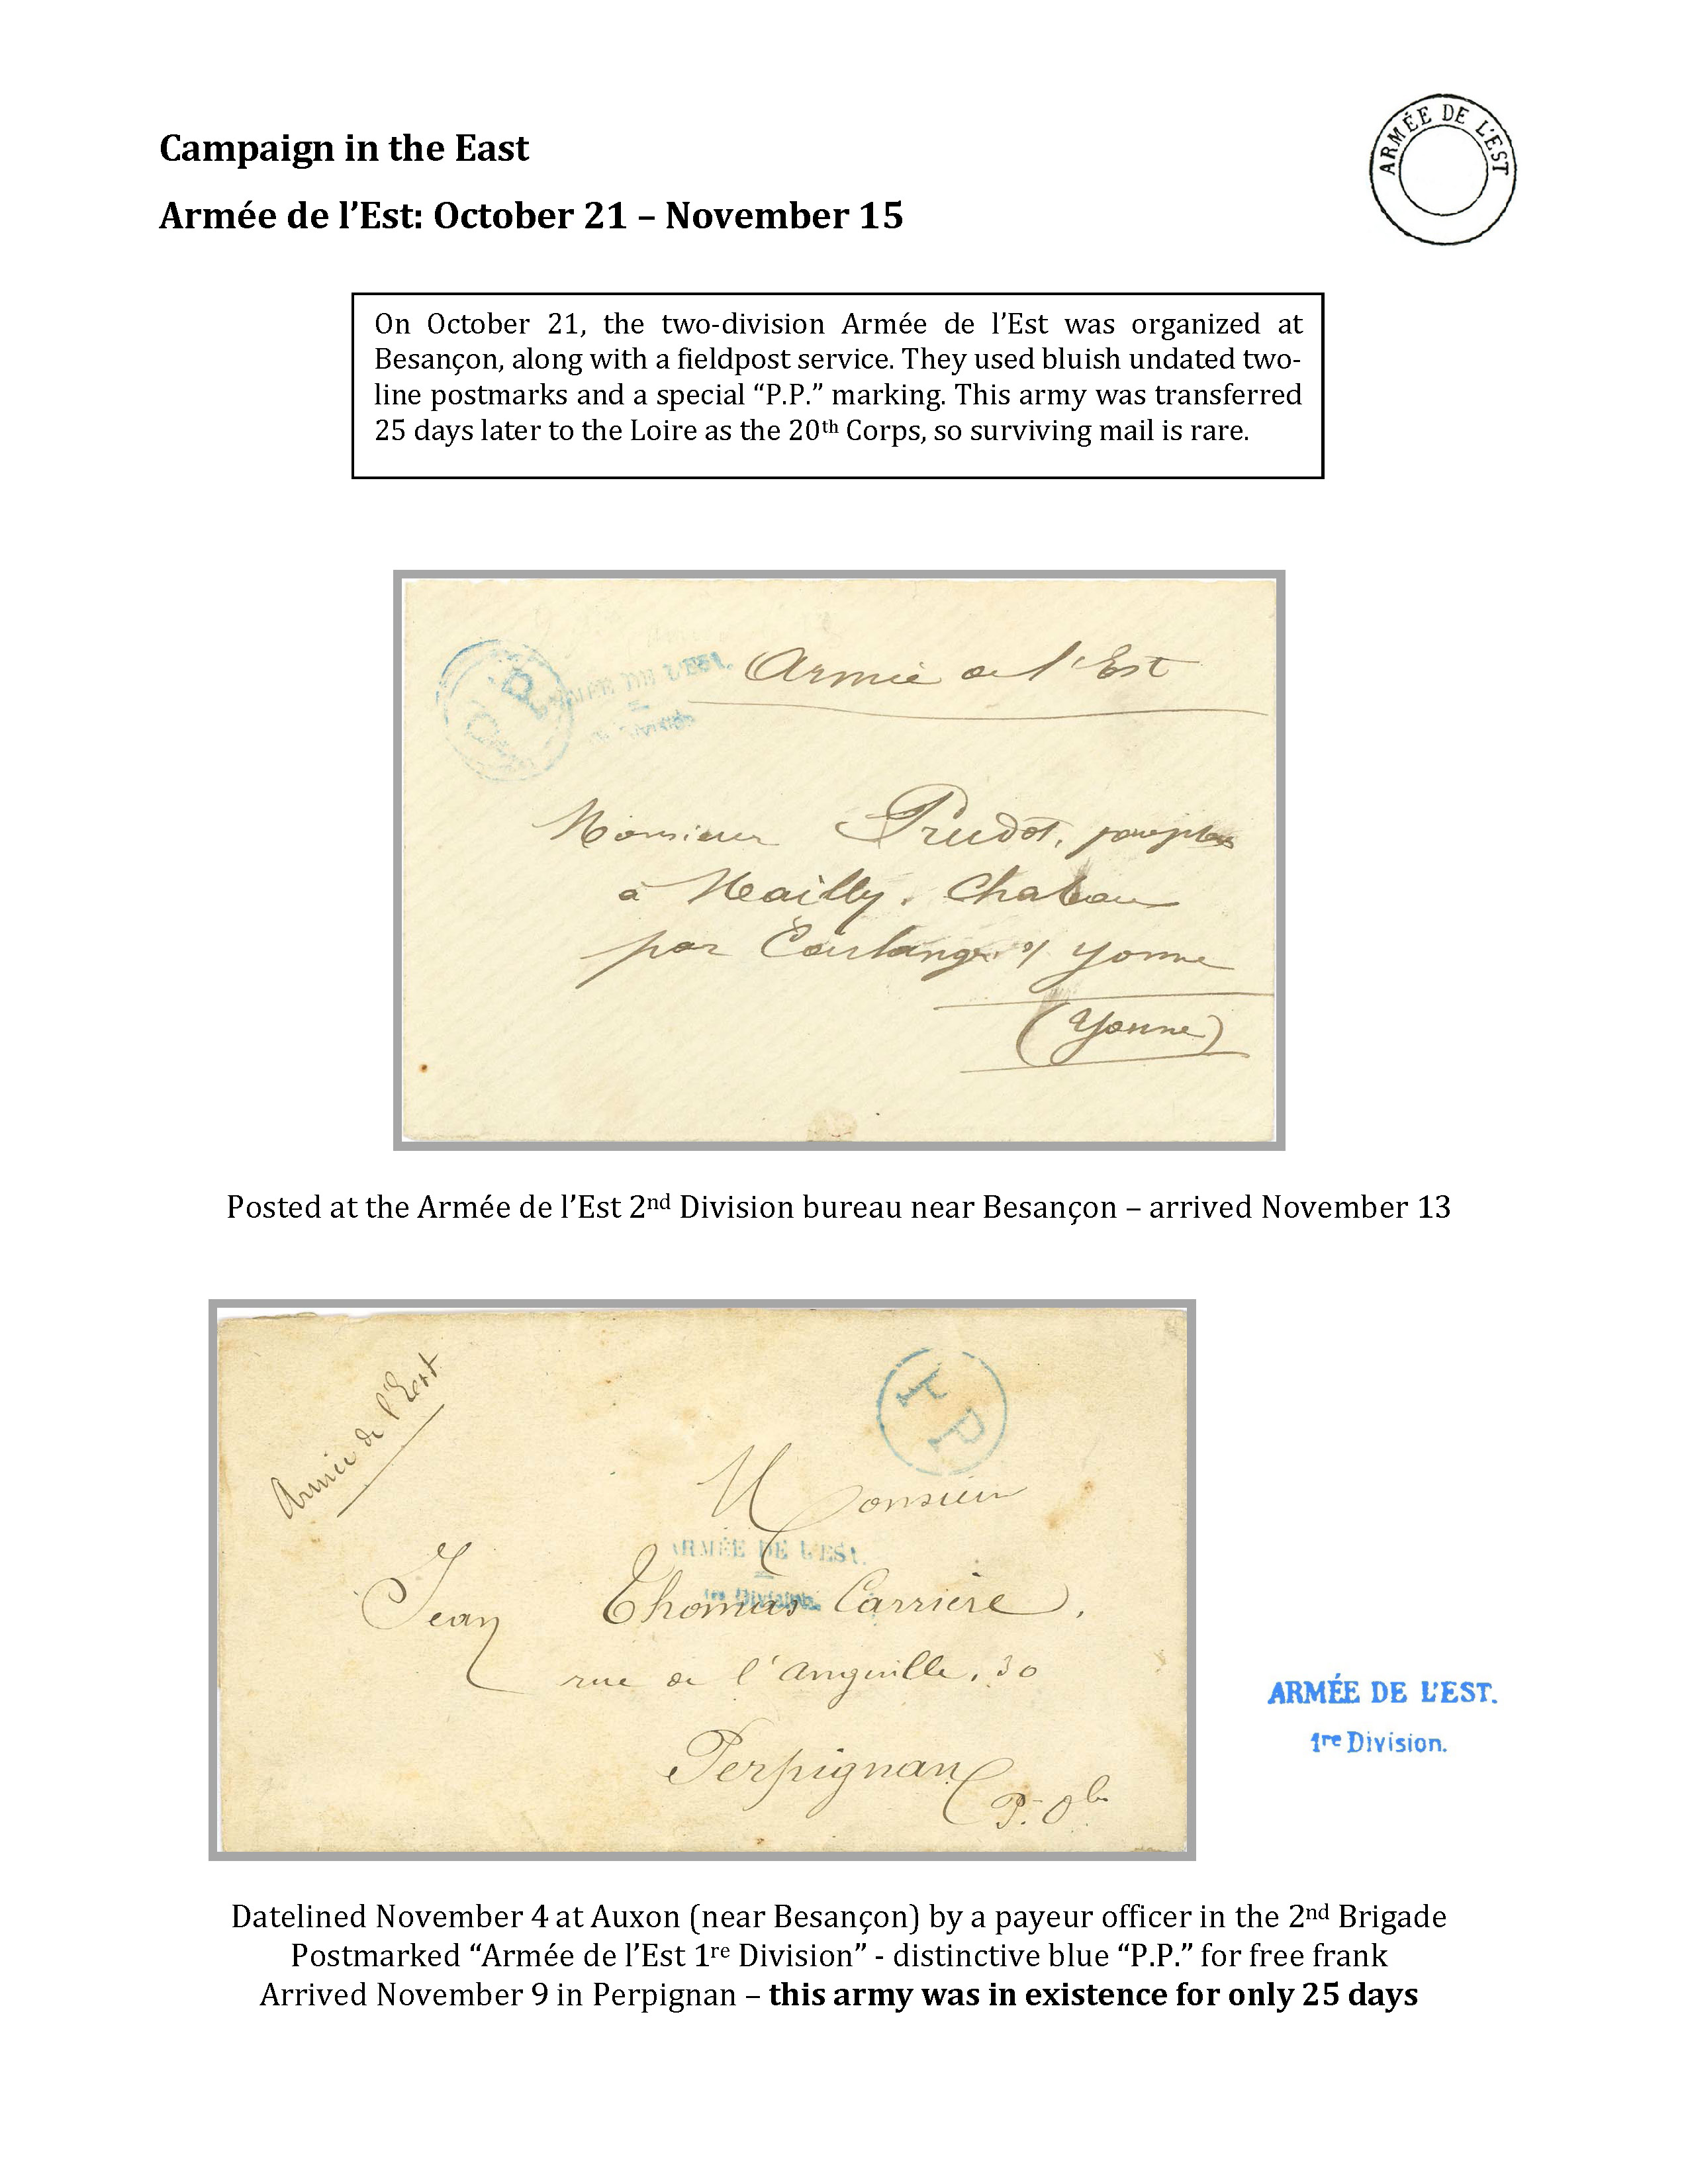 Campaign in the East
ARMÉE DE L'EST
Armée de l'Est: October 21 – November 15
On October 21, the two-division Armée de l'Est was organized at
Besançon, along with a fieldpost service. They used bluish undated two-
line postmarks and a special "P.P." marking. This army was transferred
25 days later to the Loire as the 20th Corps, so surviving mail is rare.
P.P.
DE L'EST.
Division
Armée de l'Est
Monsieur Prudot,
à Mailly. Chateau
par Coulange s/ Yonne
(Yonne)
Posted at the Armée de l'Est 2nd Division bureau near Besançon – arrived November 13
Armée de l'Est
P P
Monsieur
ARMÉE DE L'EST.
1re Division.
Jean Thomas Carrière,
rue de l'anguille, 30
Perpignan
P. Ols
ARMÉE DE L'EST.
1re Division.
Datelined November 4 at Auxon (near Besançon) by a payeur officer in the 2nd Brigade
Postmarked "Armée de l'Est 1re Division" - distinctive blue "P.P." for free frank
Arrived November 9 in Perpignan – this army was in existence for only 25 days